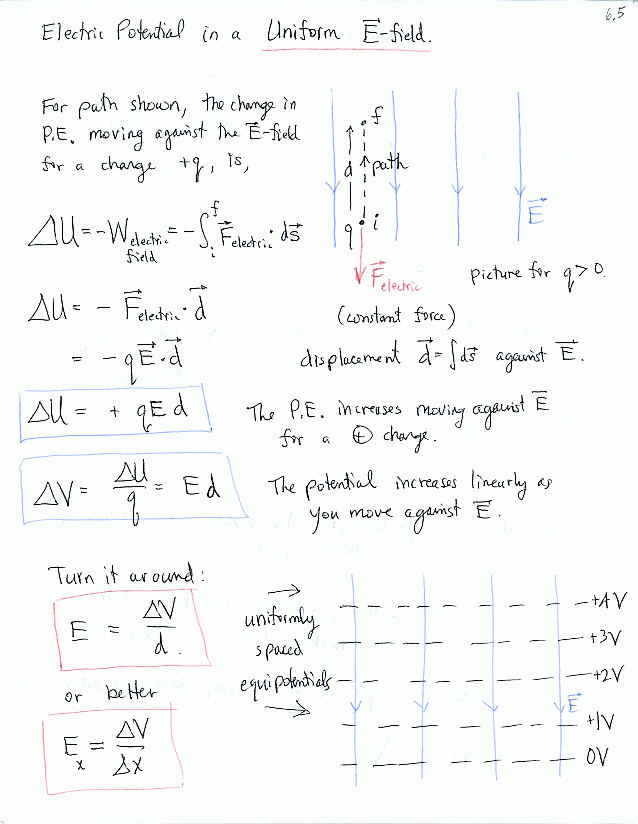 6.5
Electric Potential in a Uniform E⃗-field.
For path shown, the change in
P.E. moving against the E⃗-field
for a change +q, is,
f
d
path
q i
E⃗
F⃗electric
picture for q > 0.
(constant force)
ΔU = -W electric field = -∫ᵢᶠ F⃗electric · ds⃗
ΔU = - F⃗electric · d⃗
= - qE⃗ · d⃗
displacement d⃗ = ∫ds⃗ against E⃗.
ΔU = + qEd
The P.E. increases moving against E⃗
for a ⊕ change.
ΔV = ΔU/q = Ed
The potential increases linearly as
you move against E⃗.
Turn it around:
E = ΔV/d.
or better
Eₓ = ΔV/Δx
→
uniformly
spaced
equipotentials
→
+4V
+3V
+2V
E⃗
+1V
0V